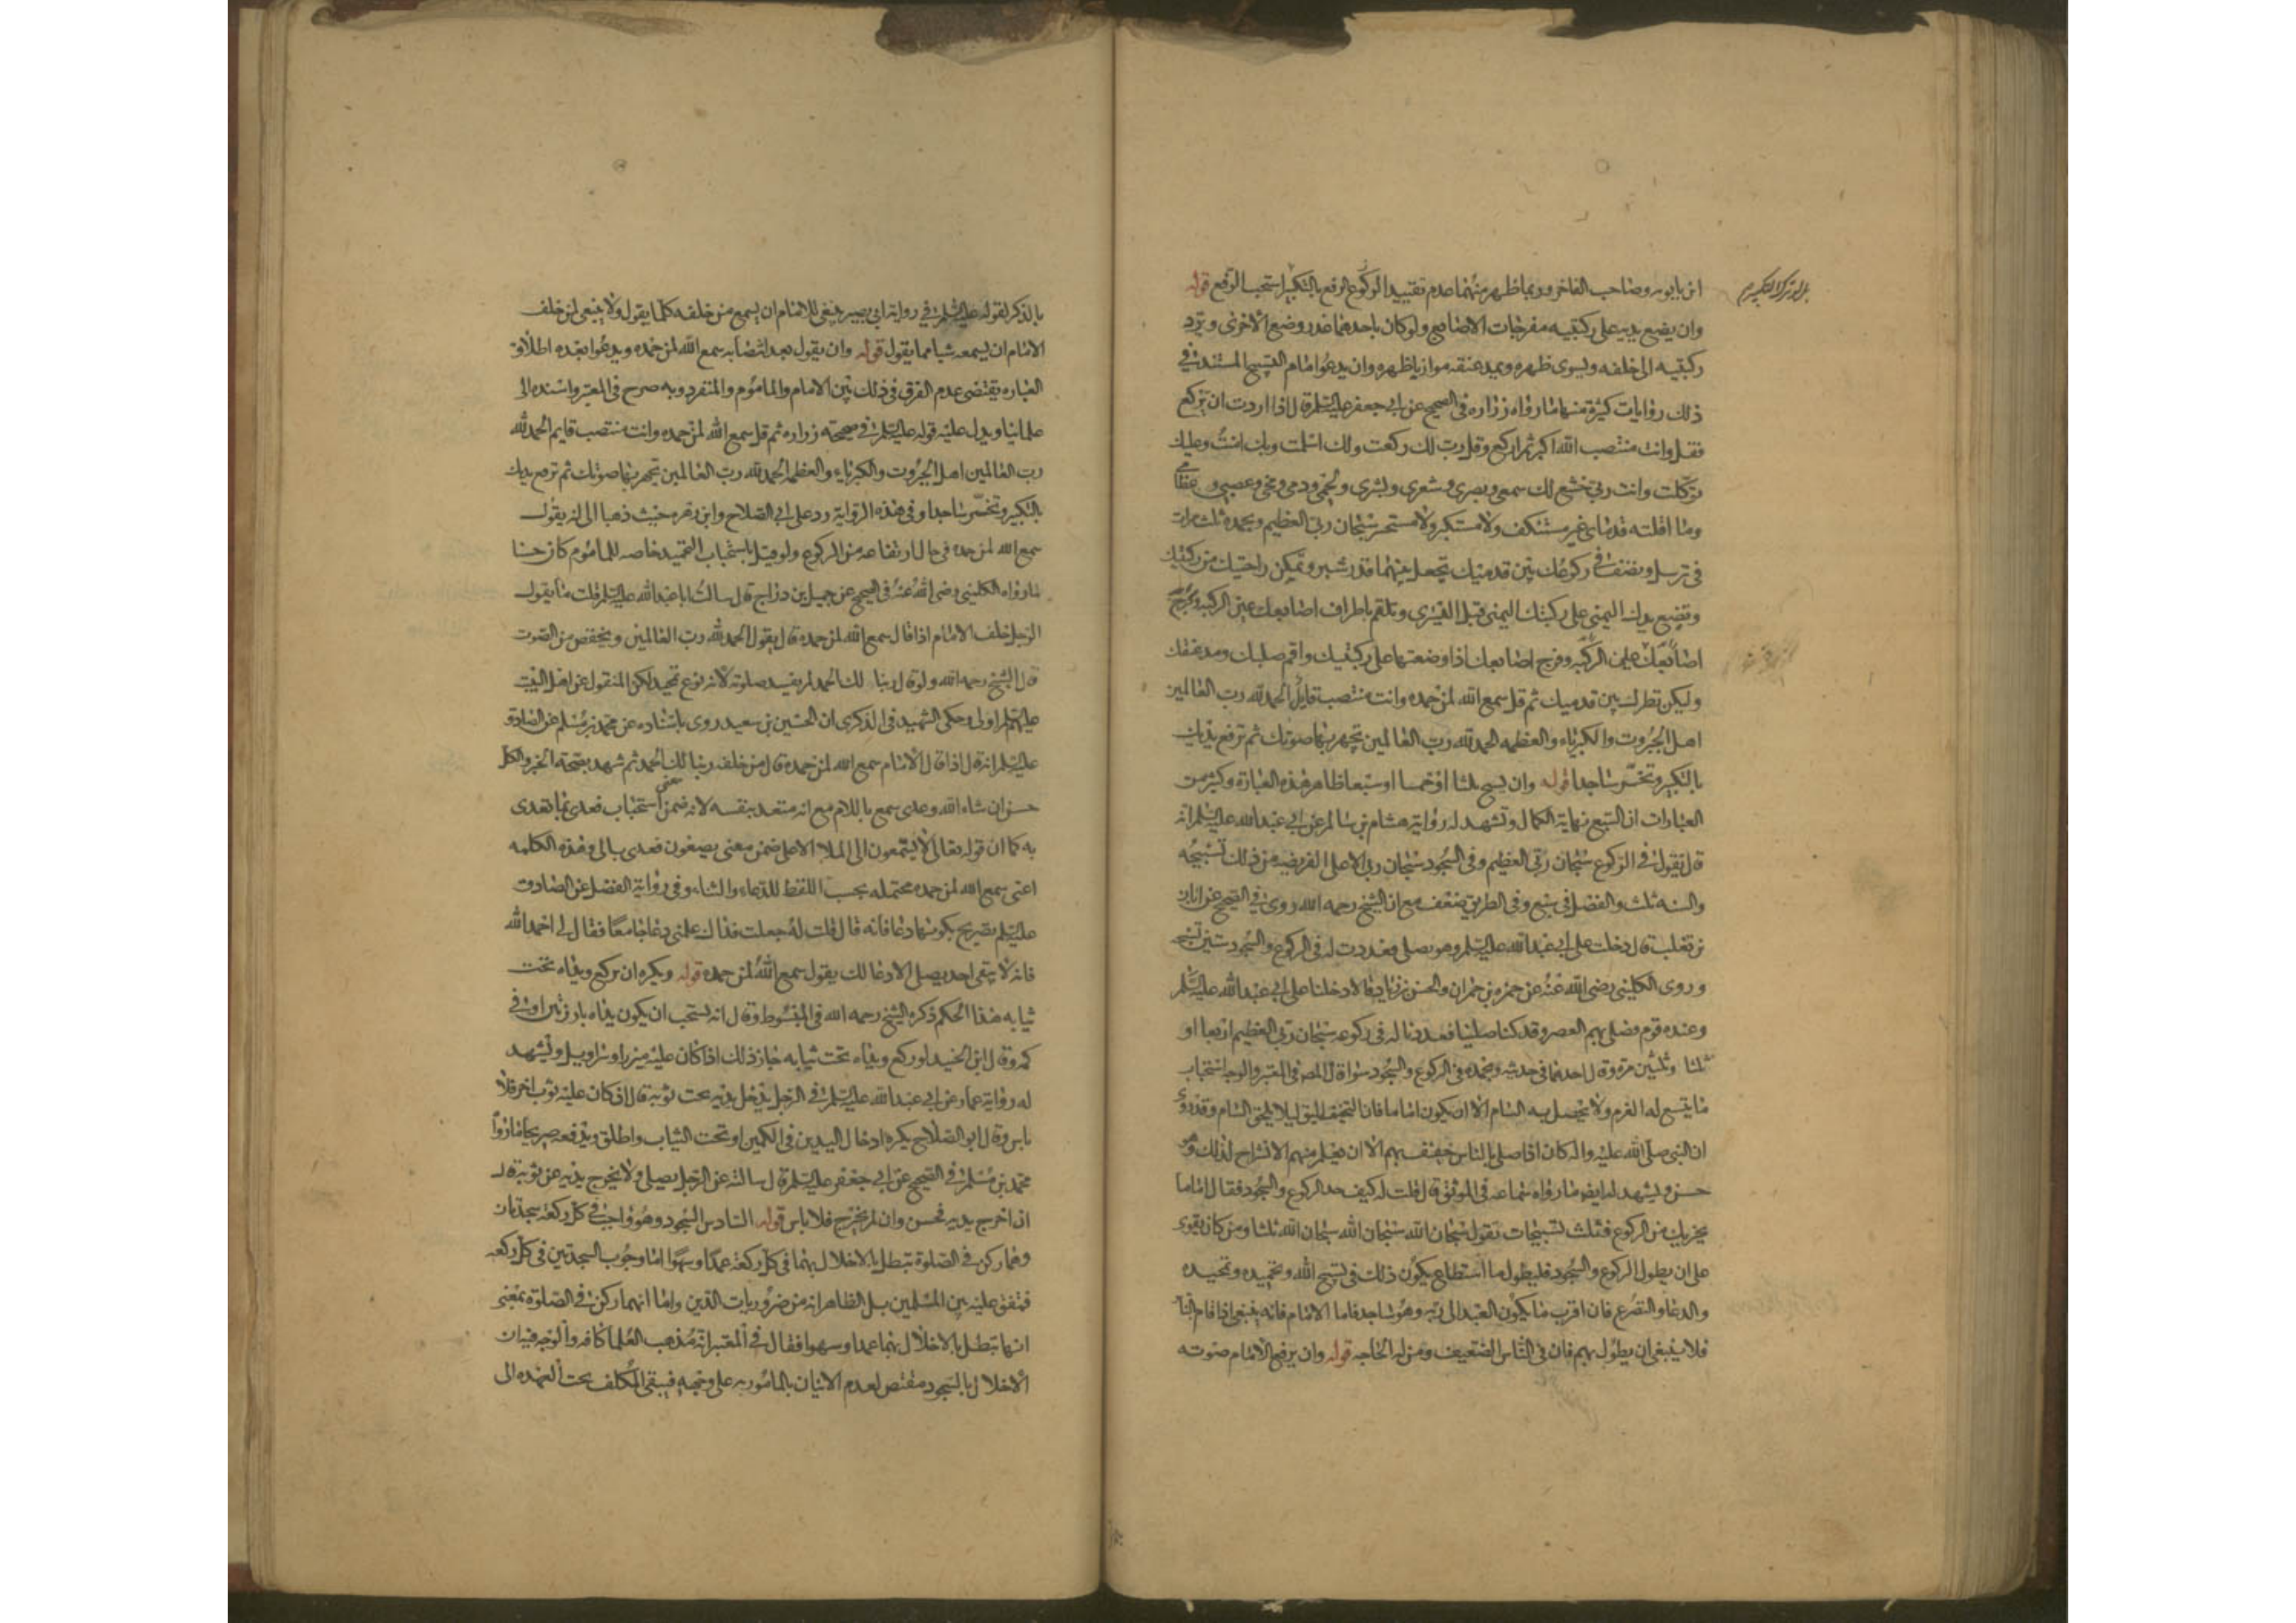 ابن بابويه وصاحب الفاخر وربما ظهر منهما عدم تقييد الركوع الرفع بالتكبير استحب الرفع قوله
وان يضع يديه على ركبتيه مفرجات الاصابع ولو كان باحدهما عذر وضع الاخرى ويرد
ركبتيه الى خلفه ويسوى ظهره ويمد عنقه موازيا ظهره وان يدعوا امام التسبيح المستند في
ذلك روايات كثيرة منها ما رواه زراره فى الصحيح عن ابي جعفر عليه السلم قال اذا اردت ان تركع
فقل وانت منتصب الله اكبر ثم اركع وقل رب لك ركعت ولك اسلمت وبك امنت وعليك
توكلت وانت ربي خشع لك سمعي وبصري وشعري وبشرى ولحمي ودمى ومخي وعصبي وعظامي
وما اقلته قدماى غير مستنكف ولا مستكبر ولا مستحسر سبحان ربي العظيم وبحمده ثلث مرات
فى ترسل وتصف في ركوعك بين قدميك تجعل بينهما قدر شبر وتمكن راحتيك من ركبتيك
وتضع يدك اليمنى على ركبتك اليمنى قبل اليسرى وتلقم باطراف اصابعك عين الركبة وفرج
اصابعك على الركبه وفرج اصابعك اذا وضعتها على ركبتيك واقم صلبك ومد عنقك
وليكن نظرك بين قدميك ثم قل سمع الله لمن حمده وانت منتصب قايم الحمد لله رب العالمين
اهل الجبروت والكبرياء والعظمه الحمد لله رب العالمين تجهر بها صوتك ثم ترفع يديك
بالتكبير وتخر ساجدا قوله وان يسبح ثلثا او خمسا او سبعا ظاهر هذه العبارة وكثير من
العبارات ان السبع نهاية الكمال وتشهد له رواية هشام بن سالم عن ابي عبد الله عليه السلم انه
قال يقول في الركوع سبحان ربي العظيم وفى السجود سبحان ربي الاعلى الفريضه من ذلك تسبيحه
والسنه ثلث والفضل فى سبع وفى الطريق ضعف مع ان الشيخ رحمه الله روى في الصحيح عن ابان
بن تغلب قال دخلت على ابي عبد الله عليه السلم وهو يصلي فعددت له فى الركوع والسجود ستين تسبيحه
وروى الكليني رضى الله عنه عن حمزه بن حمران والحسن بن زياد قالا دخلنا على ابي عبد الله عليه السلم
وعنده قوم فصلى بهم العصر وقد كنا صلينا فعددنا له فى ركوعه سبحان ربي العظيم اربعا او
ثلثا وثلثين مرة وقال احدهما فى حديثه وبحمده فى الركوع والسجود سواء قال المص فى المعتبر والوجه استحباب
ما يتسع له العزم ولا يحصل به السام الا ان يكون اماما فان التخفيف اليق ليلا يلحق السام وقد روى
ان النبي صلى الله عليه واله كان اذا صلى بالناس خفف بهم الا ان يعلم منهم الانشراح لذلك وهو
حسن ويشهد له ايضا ما رواه سماعه فى الموثق قال قلت له كيف حد الركوع والسجود فقال اما ما
يجزيك من الركوع فثلث تسبيحات تقول سبحان الله سبحان الله سبحان الله ثلثا ومن كان يقوى
على ان يطول الركوع والسجود فليطول ما استطاع يكون ذلك فى تسبيح الله وتحميده وتمجيده
والدعا والتضرع فان اقرب ما يكون العبد الى ربه وهو ساجد فاما الامام فانه ينبغى اذا قام بالناس
فلا ينبغي ان يطول بهم فان فى الناس الضعيف ومن له الحاجه قوله وان يرفع الامام صوته
بالذكر لقوله عليه السلم في رواية ابي بصير ينبغى للامام ان يسمع من خلفه كلما يقول ولا ينبغى لمن خلف
الامام ان يسمعه شيا مما يقول قوله وان يقول بعد انتصابه سمع الله لمن حمده ويدعوا بعده اطلاق
العباره يقتضى عدم الفرق فى ذلك بين الامام والماموم والمنفرد وبه صرح فى المعتبر واسنده الى
علمائنا ويدل عليه قوله عليه السلم في صحيحة زراره ثم قل سمع الله لمن حمده وانت منتصب قايم الحمد لله
رب العالمين اهل الجبروت والكبرياء والعظمه الحمد لله رب العالمين تجهر بها صوتك ثم ترفع يديك
بالتكبير وتخر ساجدا وفى هذه الرواية رد على ابي الصلاح وابن زهره حيث ذهبا الى انه يقول
سمع الله لمن حمده فى حال ارتفاعه من الركوع ولو قيل باستحباب التحميد خاصه للماموم كان حسنا
لما رواه الكليني رضى الله عنه فى الصحيح عن جميل بن دراج قال سالت ابا عبد الله عليه السلم قلت ما يقول
الرجل خلف الامام اذا قال سمع الله لمن حمده قال يقول الحمد لله رب العالمين ويخفض من الصوت
قال الشيخ رحمه الله ولو قال ربنا لك الحمد لم يفسد صلوته لانه نوع تحميد لكن المنقول عن اهل البيت
عليهم السلم اولى وحكى الشهيد فى الذكرى ان الحسين بن سعيد روى باسناده عن محمد بن مسلم عن الصادق
عليه السلم انه قال اذا قال الامام سمع الله لمن حمده قال من خلفه ربنا لك الحمد ثم شهد بصحته الخبر والكل
حسن ان شاء الله وعدى سمع باللام مع انه متعد بنفسه لانه ضمن معنى استجاب فعدى بما تعدى
به كما ان قوله تعالى لا يسمعون الى الملا الاعلى ضمن معنى يصغون فعدى بالى وهذه الكلمه
اعنى سمع الله لمن حمده محتمله بحسب اللفظ للدعاء والثناء وفى رواية المفضل عن الصادق
عليه السلم تصريح بكونها دعا فانه قال قلت له جعلت فداك علمنى دعا جامعا فقال لى احمد الله
فانه لا يبقى احد يصلى الا دعا لك يقول سمع الله لمن حمده قوله ويكره ان يركع ويداه تحت
ثيابه هذا الحكم ذكره الشيخ رحمه الله فى المبسوط وقال انه يستحب ان يكون يداه بارزتين او في
كمه وقال ابن الجنيد لو ركع ويداه تحت ثيابه جاز ذلك اذا كان عليه مئزر او سراويل ويشهد
له رواية عمار عن ابي عبد الله عليه السلم في الرجل يدخل يديه تحت ثوبه قال ان كان عليه ثوب اخر فلا
باس وقال ابو الصلاح يكره ادخال اليدين فى الكمين او تحت الثياب واطلق ويدفعه صريحا ما رواه
محمد بن مسلم في الصحيح عن ابي جعفر عليه السلم قال سالته عن الرجل يصلي ولا يخرج يديه عن ثوبه قال
ان اخرج يديه فحسن وان لم يخرج فلا باس قوله السادس السجود وهو واجب في كل ركعه سجدتان
وهما ركن في الصلوة تبطل بالاخلال بهما فى كل ركعه عمدا وسهوا اما وجوب السجدتين فى كل ركعه
فمتفق عليه بين المسلمين بل الظاهر انه من ضروريات الدين واما انهما ركن في الصلوة بمعنى
انها تبطل بالاخلال بهما عمدا وسهوا فقال في المعتبر انه مذهب العلما كافه والوجه فيه ان
الاخلال بالسجود مقتض لعدم الاتيان بالمامور به على وجهه فيبقى المكلف تحت العهده الى